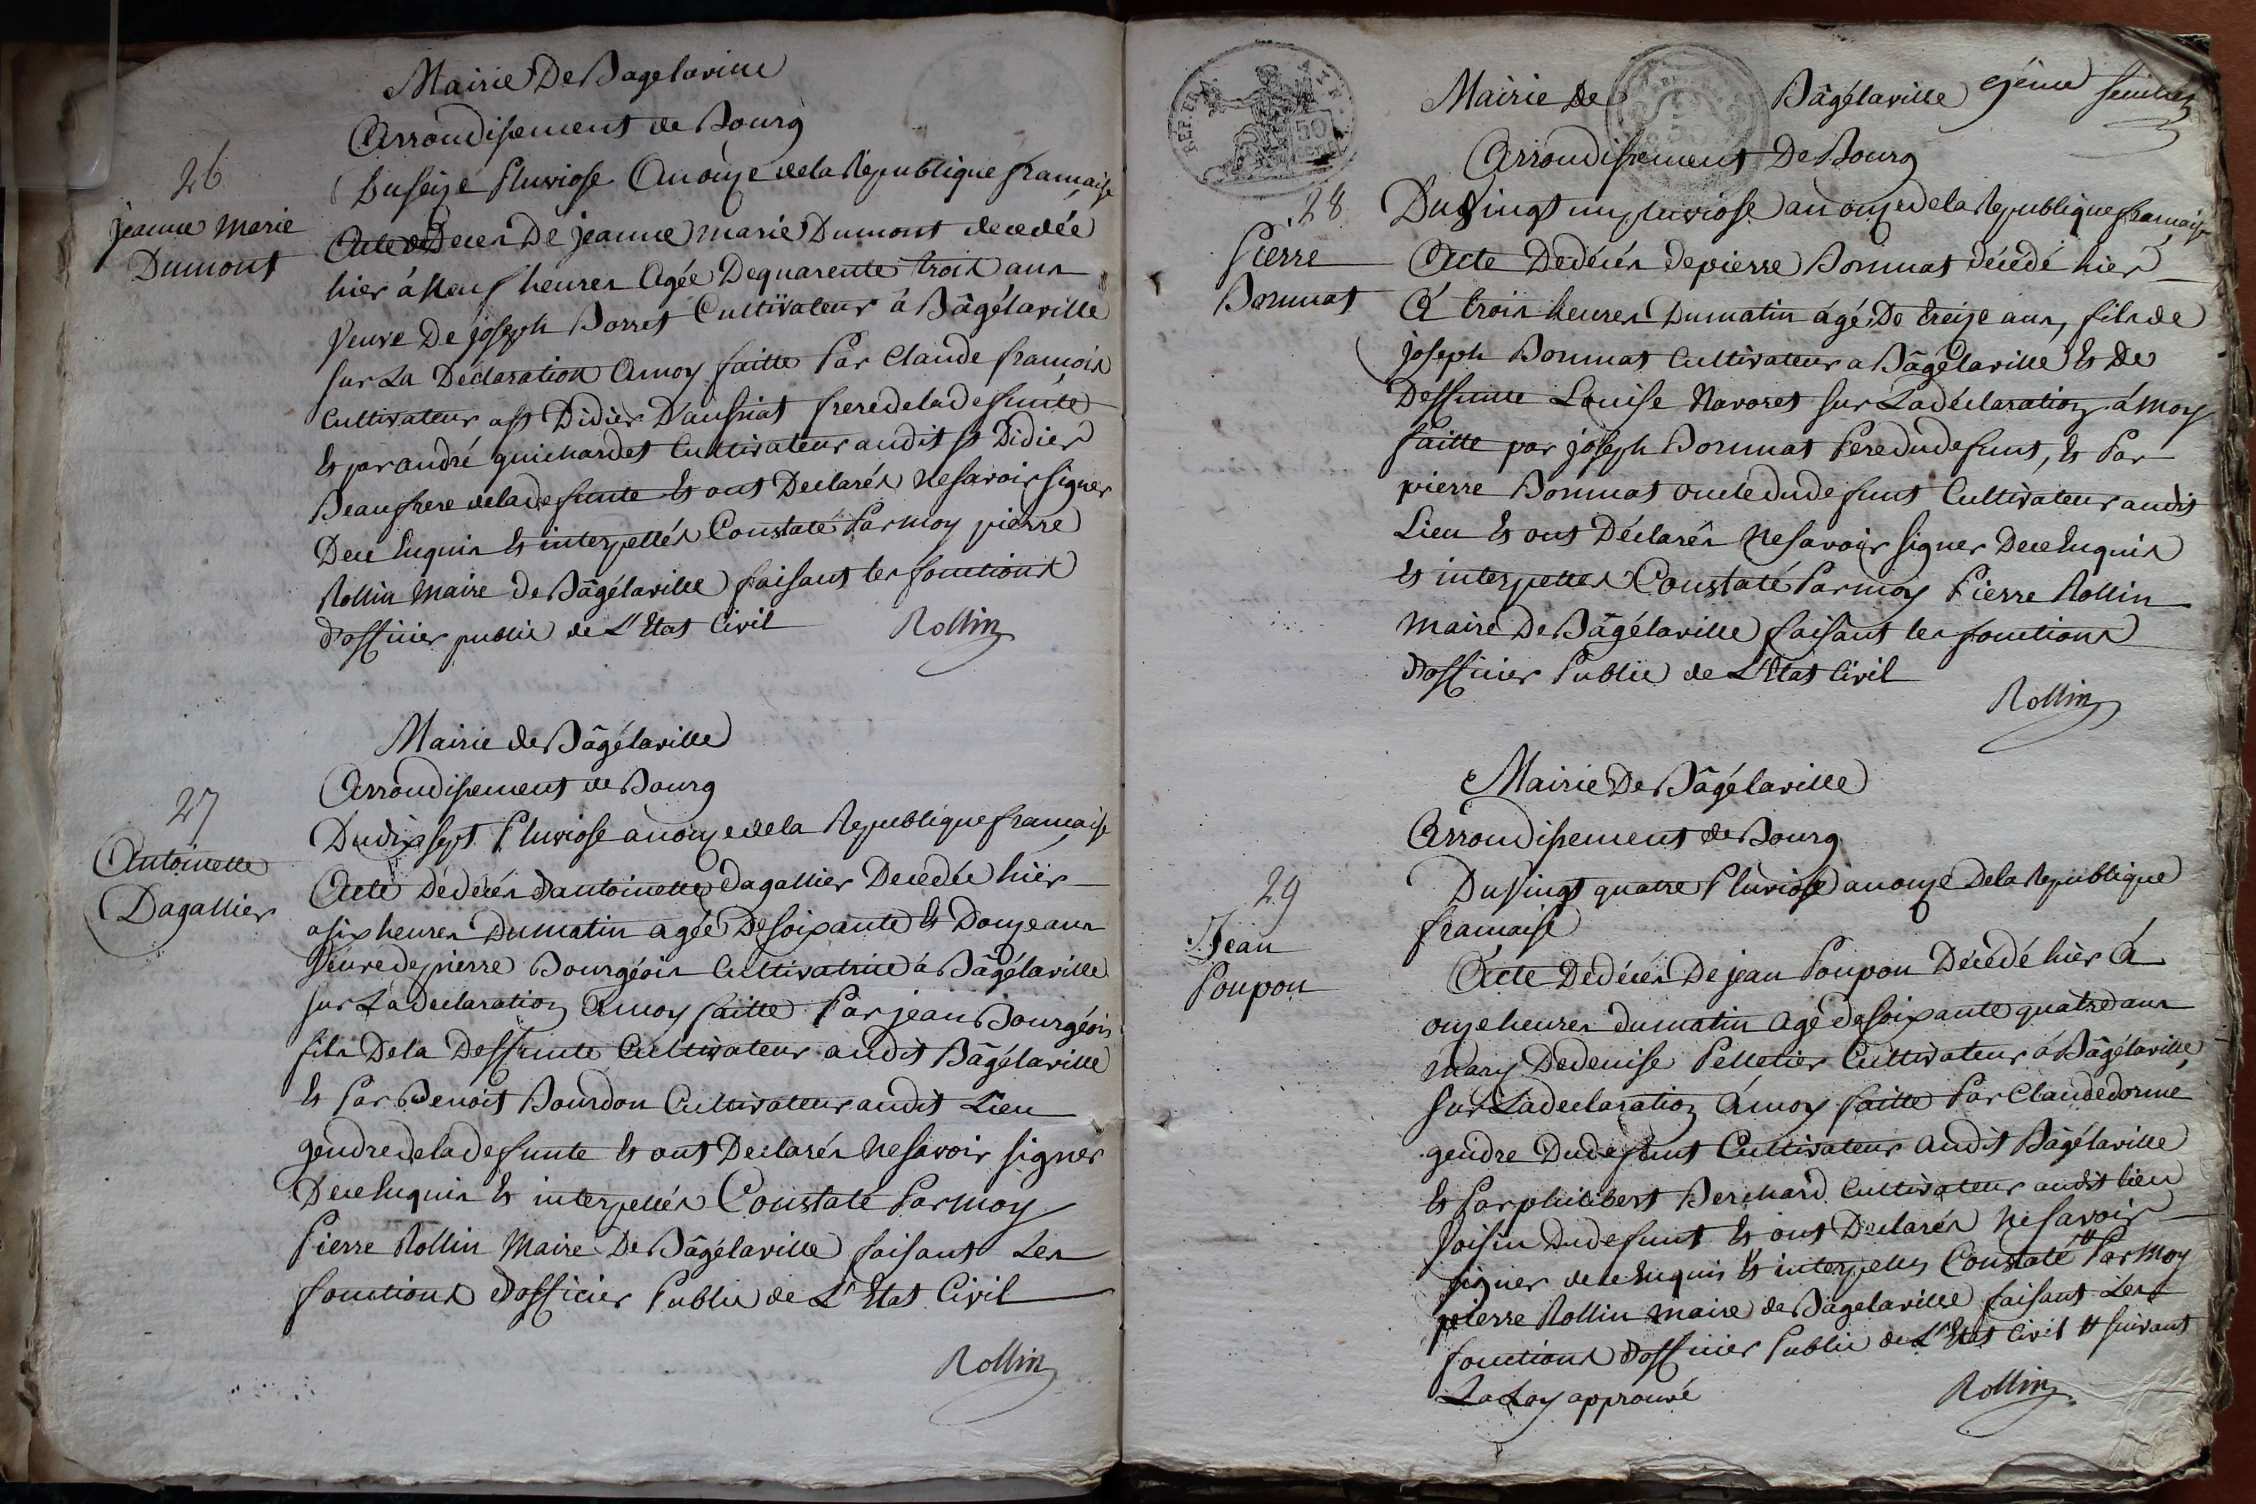 Mairie De Bagelaville
Arrondissement de Bourg
26
jeanne marie
Dumont
Du seize Pluviose An onze de la Republique française
Acte de Deces De jeanne marie Dumont decedée
hier á neuf heures Agée De quarente trois ans
veuve De joseph Borret Cultivateur á Bâgélaville
sur La Déclaration Amoy faitte Par Claude françois
Cultivateur a st Didier D'aussiat frere de la defunte
et par andré guichardet Cultivateur audit st Didier
Beaufrere de la defunte et ont Declarés Ne savoir signer
De ce Enquis et interpellés Constaté Par moy pierre
Rollin Maire de Bâgélaville faisant les fonctions
d'officier public de L'Etat Civil
Rollin
Mairie de Bâgélaville
Arrondissement de Bourg
27
Antoinette
Dagallier
Du dix sept Pluviose an onze de la Republique française
Acte De déces d'antoinette dagallier Decedée hier
a six heures Du matin agée De soixante et Douze ans
veuve de pierre Bourgéois Cultivatrice á Bâgélaville
sur La declaration Amoy faitte Par jean Bourgéois
fils De la Deffunte Cultivateur audit Bâgélaville
et Par Benoit Bourdon Cultivateur audit Lieu
gendre de la defunte et ont Declarés Ne savoir signer
De ce Enquis et interpellés Constaté Par moy
Pierre Rollin Maire De Bâgélaville faisant Les
fonctions d'officier Public de L'Etat Civil
Rollin
REP. FRA
50
Mairie de Bâgélaville 9éme feuillet
Arrondissement De Bourg
28
Pierre
Bonnat
Du Vingt un pluviose an onze de la Republique française
Acte De décés de pierre Bonnat décédé hier
á trois heures Du matin ágé De treize ans, fils de
joseph Bonnat Cultivateur a Bâgélaville et de
Deffunte Louise Navoret sur La déclaration á moy
faitte par joseph Bonnat Pere du defunt, et Par
pierre Bonnat oncle du defunt Cultivateur audit
Lieu et ont Déclarés Ne savoir signer De ce Enquis
et interpellés Constaté Par moy Pierre Rollin
Maire De Bâgélaville faisant les fonctions
d'officier Public de L'Etat Civil
Rollin
Mairie De Bâgélaville
Arrondissement de Bourg
29
Jean
Poupon
Du Vingt quatre Pluviose an onze De la Republique
française
Acte De déces De jean Poupon Décédé hier á
onze heures du matin Agé de soixante quatre ans
Mary De denise Pelletier Cultivateur á Bâgélaville
sur La declaration Amoy faitte Par Claude dorme
gendre Du defunt Cultivateur audit Bâgélaville
et Par philibert Berchard Cultivateur audit lieu
Voisin Du defunt et ont Declarés Ne savoir
signer de ce Enquis et interpelles Constaté # Par Moy
pierre Rollin Maire de Bâgélaville faisant Les
fonctions d'officier Public de L'Etat Civil # suivant
La Loy approuvé
Rollin